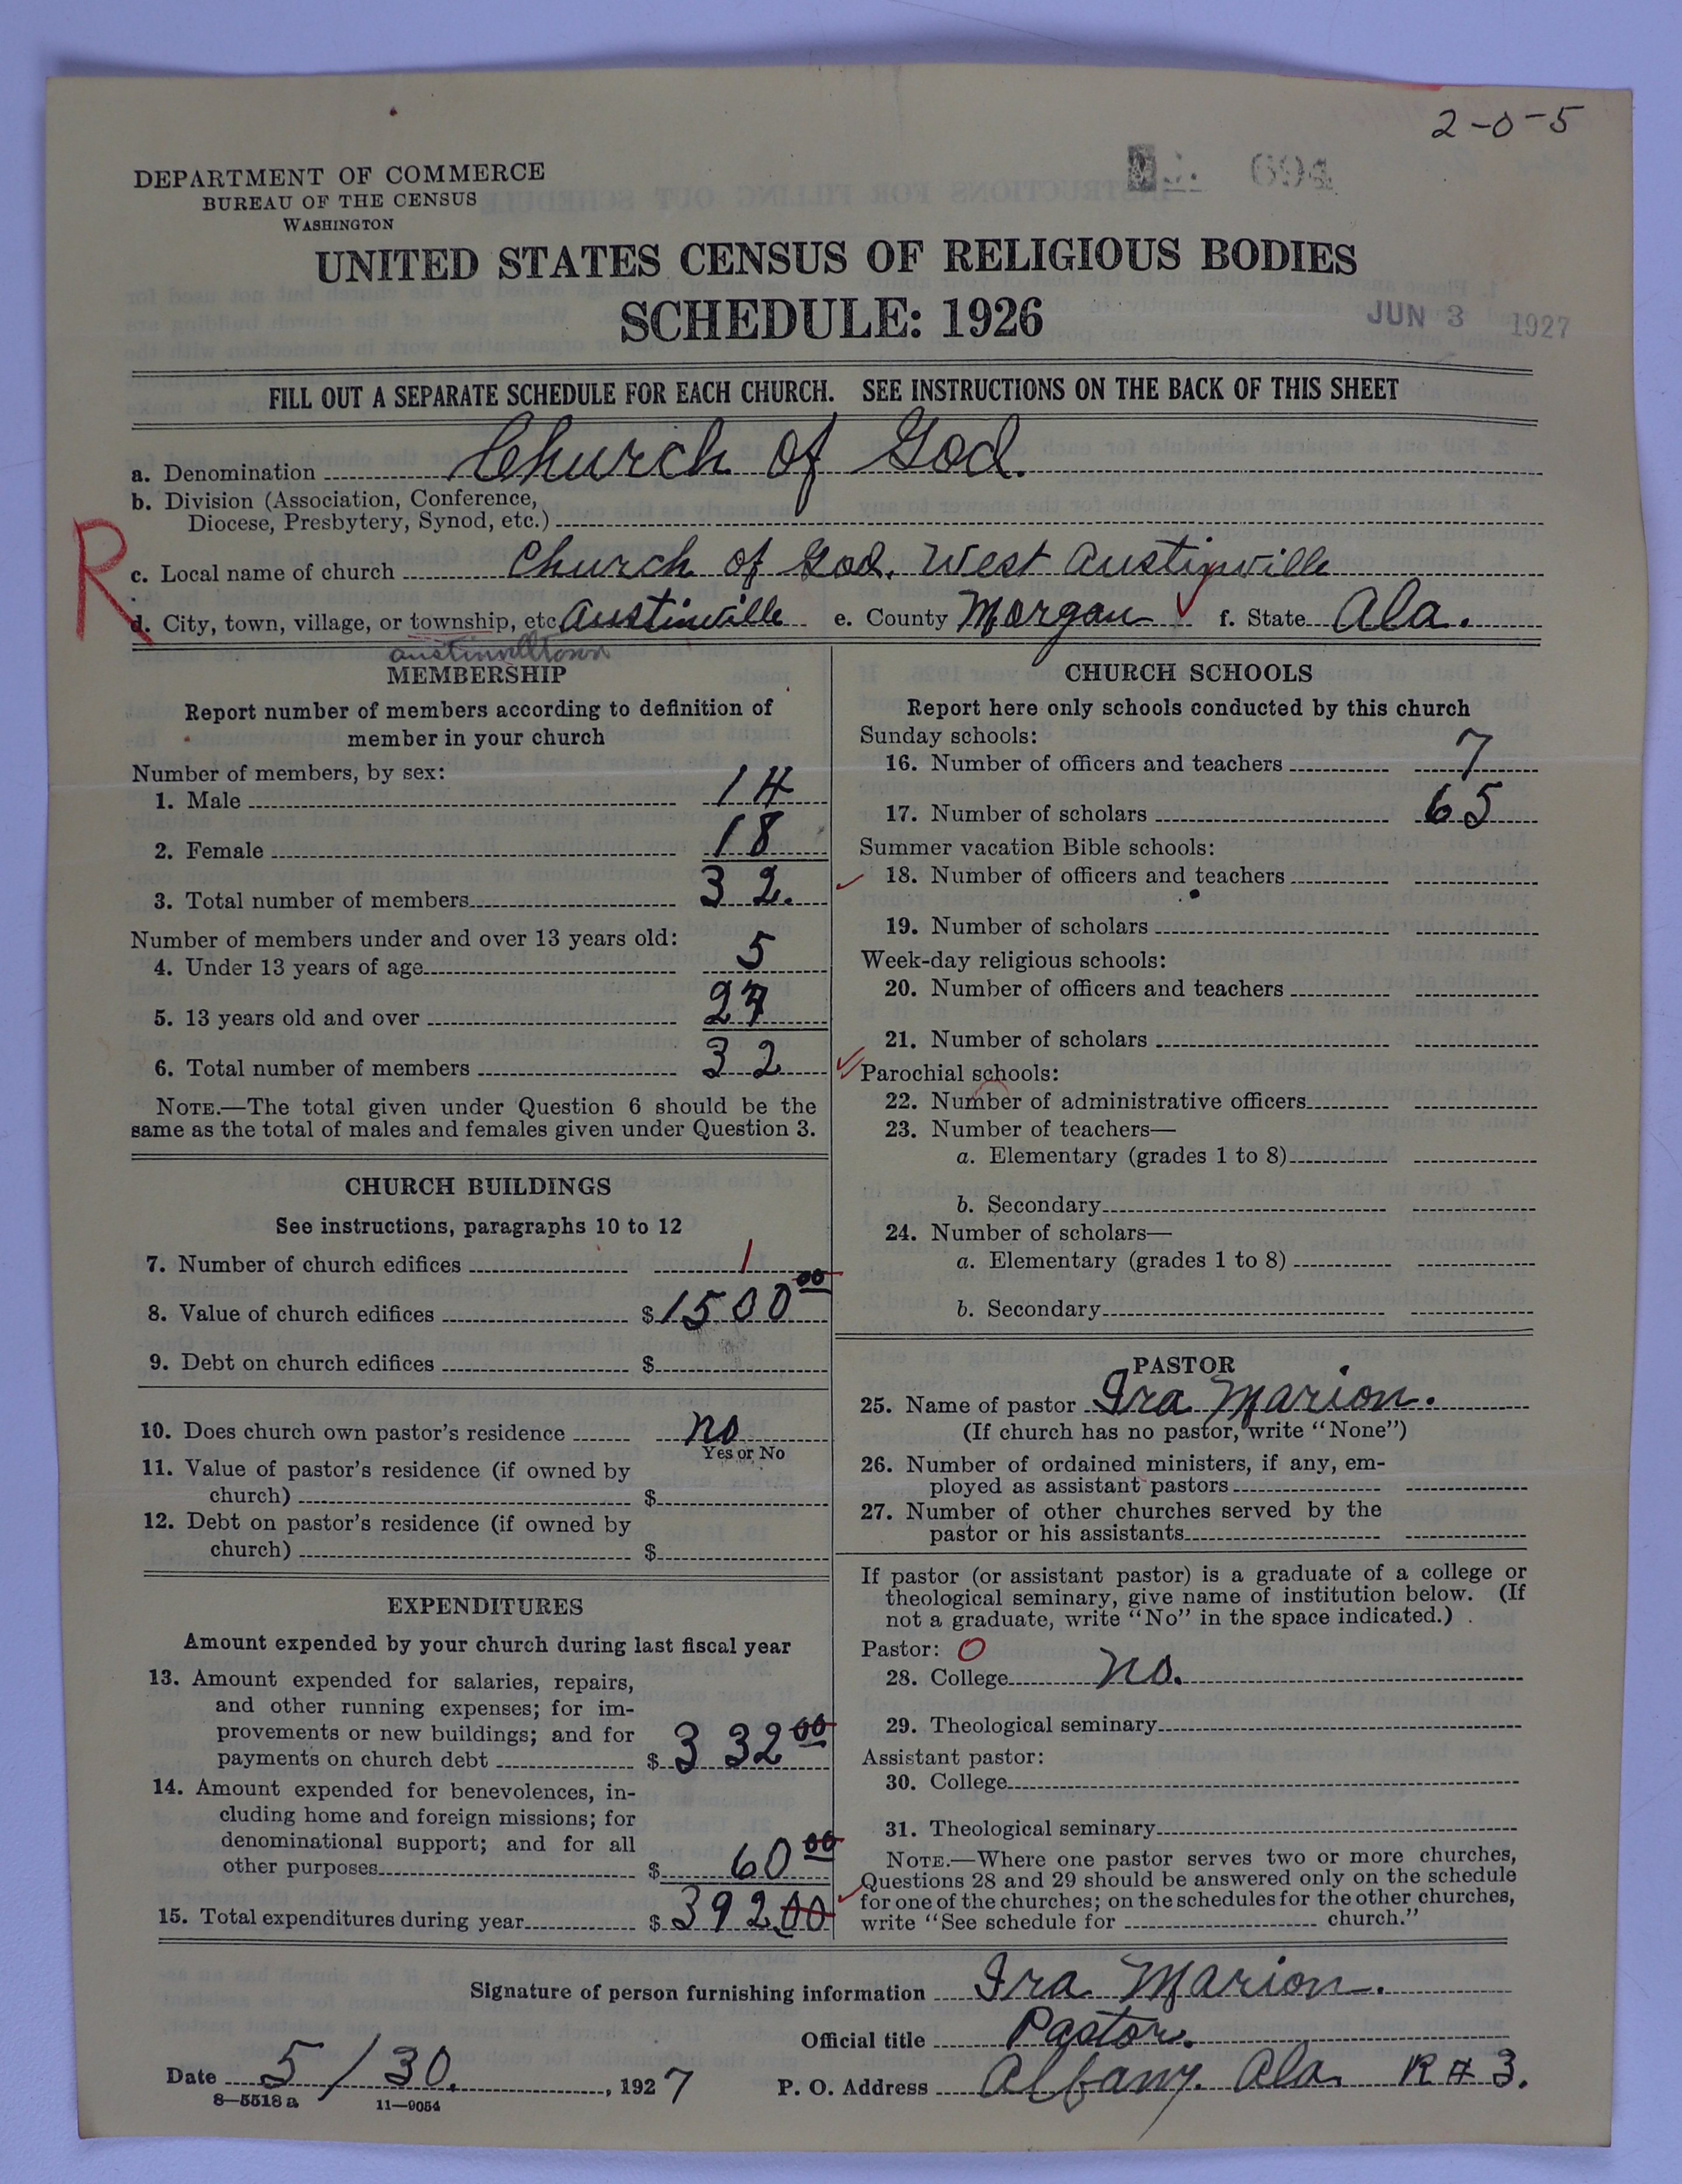 2-0-5
694
DEPARTMENT OF COMMERCE
BUREAU OF THE CENSUS
WASHINGTON
UNITED STATES CENSUS OF RELIGIOUS BODIES
SCHEDULE: 1926
JUN 3 1927
FILL OUT A SEPARATE SCHEDULE FOR EACH CHURCH. SEE INSTRUCTIONS ON THE BACK OF THIS SHEET
a. Denomination Church of God.
b. Division (Association, Conference,
Diocese, Presbytery, Synod, etc.)
R
c. Local name of church Church of God. West Austinville
d. City, town, village, or township, etc Austinville e. County Morgan f. State Ala.
MEMBERSHIP
Report number of members according to definition of
member in your church
Number of members, by sex:
1. Male 14
2. Female 18
3. Total number of members 32.
Number of members under and over 13 years old:
4. Under 13 years of age 5
5. 13 years old and over 27
6. Total number of members 32
NOTE.—The total given under Question 6 should be the
same as the total of males and females given under Question 3.
CHURCH BUILDINGS
See instructions, paragraphs 10 to 12
7. Number of church edifices 1
8. Value of church edifices $1500 00
9. Debt on church edifices $
10. Does church own pastor's residence no
Yes or No
11. Value of pastor's residence (if owned by
church) $
12. Debt on pastor's residence (if owned by
church) $
EXPENDITURES
Amount expended by your church during last fiscal year
13. Amount expended for salaries, repairs,
and other running expenses; for im-
provements or new buildings; and for
payments on church debt $ 332 00
14. Amount expended for benevolences, in-
cluding home and foreign missions; for
denominational support; and for all
other purposes $ 60 00
15. Total expenditures during year $ 392.00
CHURCH SCHOOLS
Report here only schools conducted by this church
Sunday schools:
16. Number of officers and teachers 7
17. Number of scholars 65
Summer vacation Bible schools:
18. Number of officers and teachers
19. Number of scholars
Week-day religious schools:
20. Number of officers and teachers
21. Number of scholars
Parochial schools:
22. Number of administrative officers
23. Number of teachers—
a. Elementary (grades 1 to 8)
b. Secondary
24. Number of scholars—
a. Elementary (grades 1 to 8)
b. Secondary
PASTOR
25. Name of pastor Ira Marion.
(If church has no pastor, write "None")
26. Number of ordained ministers, if any, em-
ployed as assistant pastors
27. Number of other churches served by the
pastor or his assistants
If pastor (or assistant pastor) is a graduate of a college or
theological seminary, give name of institution below. (If
not a graduate, write "No" in the space indicated.)
Pastor: O
28. College no.
29. Theological seminary
Assistant pastor:
30. College
31. Theological seminary
NOTE.—Where one pastor serves two or more churches,
Questions 28 and 29 should be answered only on the schedule
for one of the churches; on the schedules for the other churches,
write "See schedule for church."
Signature of person furnishing information Ira Marion.
Official title Pastor.
Date 5/30., 1927 P. O. Address Albany. Ala. R # 3.
8—5518 a 11—9054